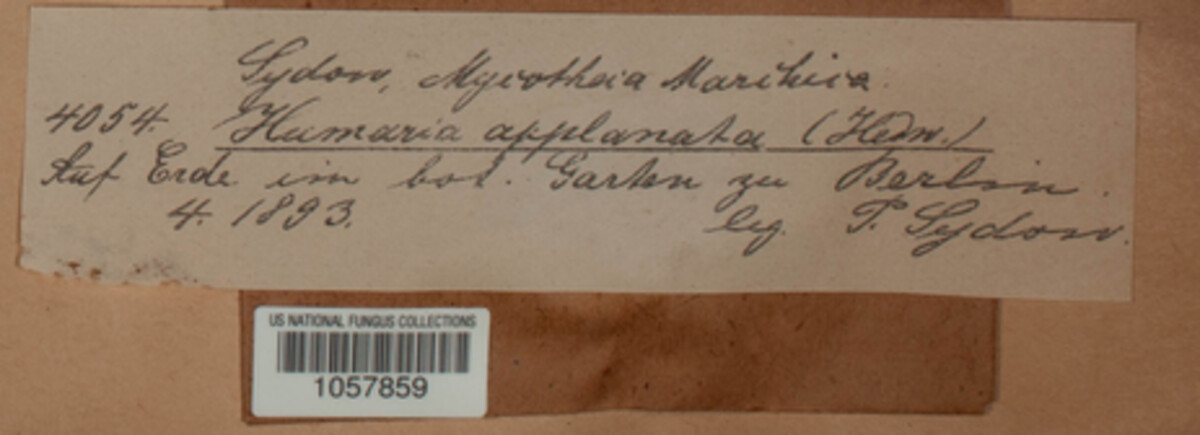 Sydow, Mycotheca Marchica.
4054. Humaria applanata (Hedw.)
Auf Erde im bot. Garten zu Berlin.
4. 1893. leg. P. Sydow.
US NATIONAL FUNGUS COLLECTIONS
1057859